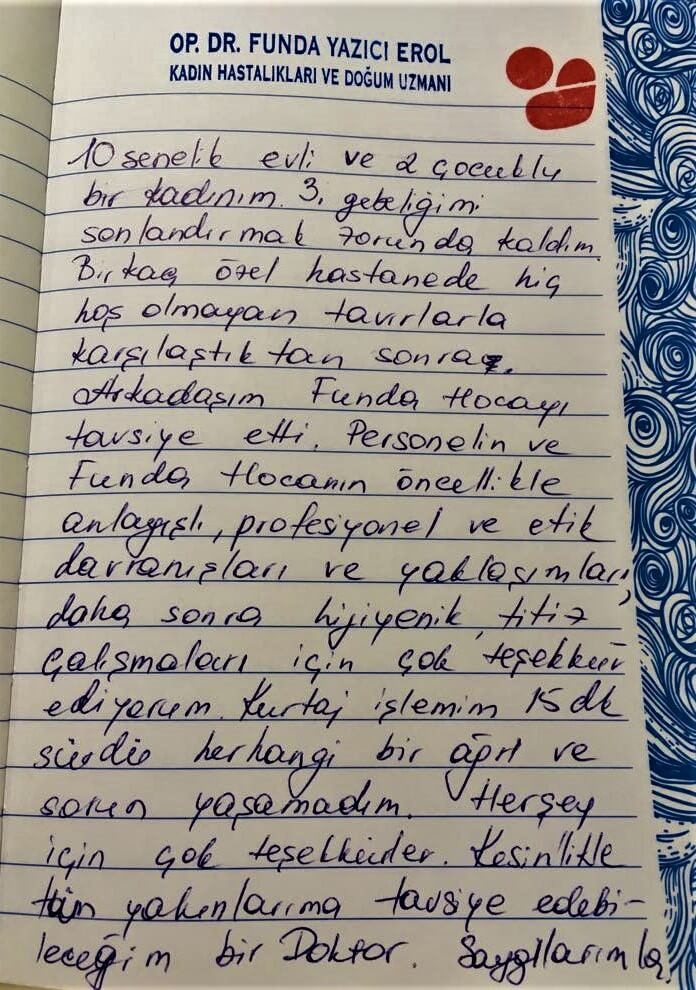 OP. DR. FUNDA YAZICI EROL
KADIN HASTALIKLARI VE DOĞUM UZMANI
10 senelik evli ve 2 çocuklu
bir kadınım. 3. gebeliğimi
sonlandırmak zorunda kaldım.
Birkaç özel hastanede hiç
hoş olmayan tavırlarla
karşılaştıktan sonra,
Arkadaşım Funda Hocayı
tavsiye etti. Personelin ve
Funda Hocanın öncellikle
anlayışlı, profesiyonel ve etik
davranışları ve yaklaşımları,
daha sonra hijiyenik, titiz
çalışmaları için çok teşekkür
ediyorum. Kürtaj işlemim 15 dk
sürdü herhangi bir ağrı ve
sorun yaşamadım. Herşey
için çok teşekkürler. Kesinlikle
tüm yakınlarıma tavsiye edebi-
leceğim bir Doktor. Saygılarımla,